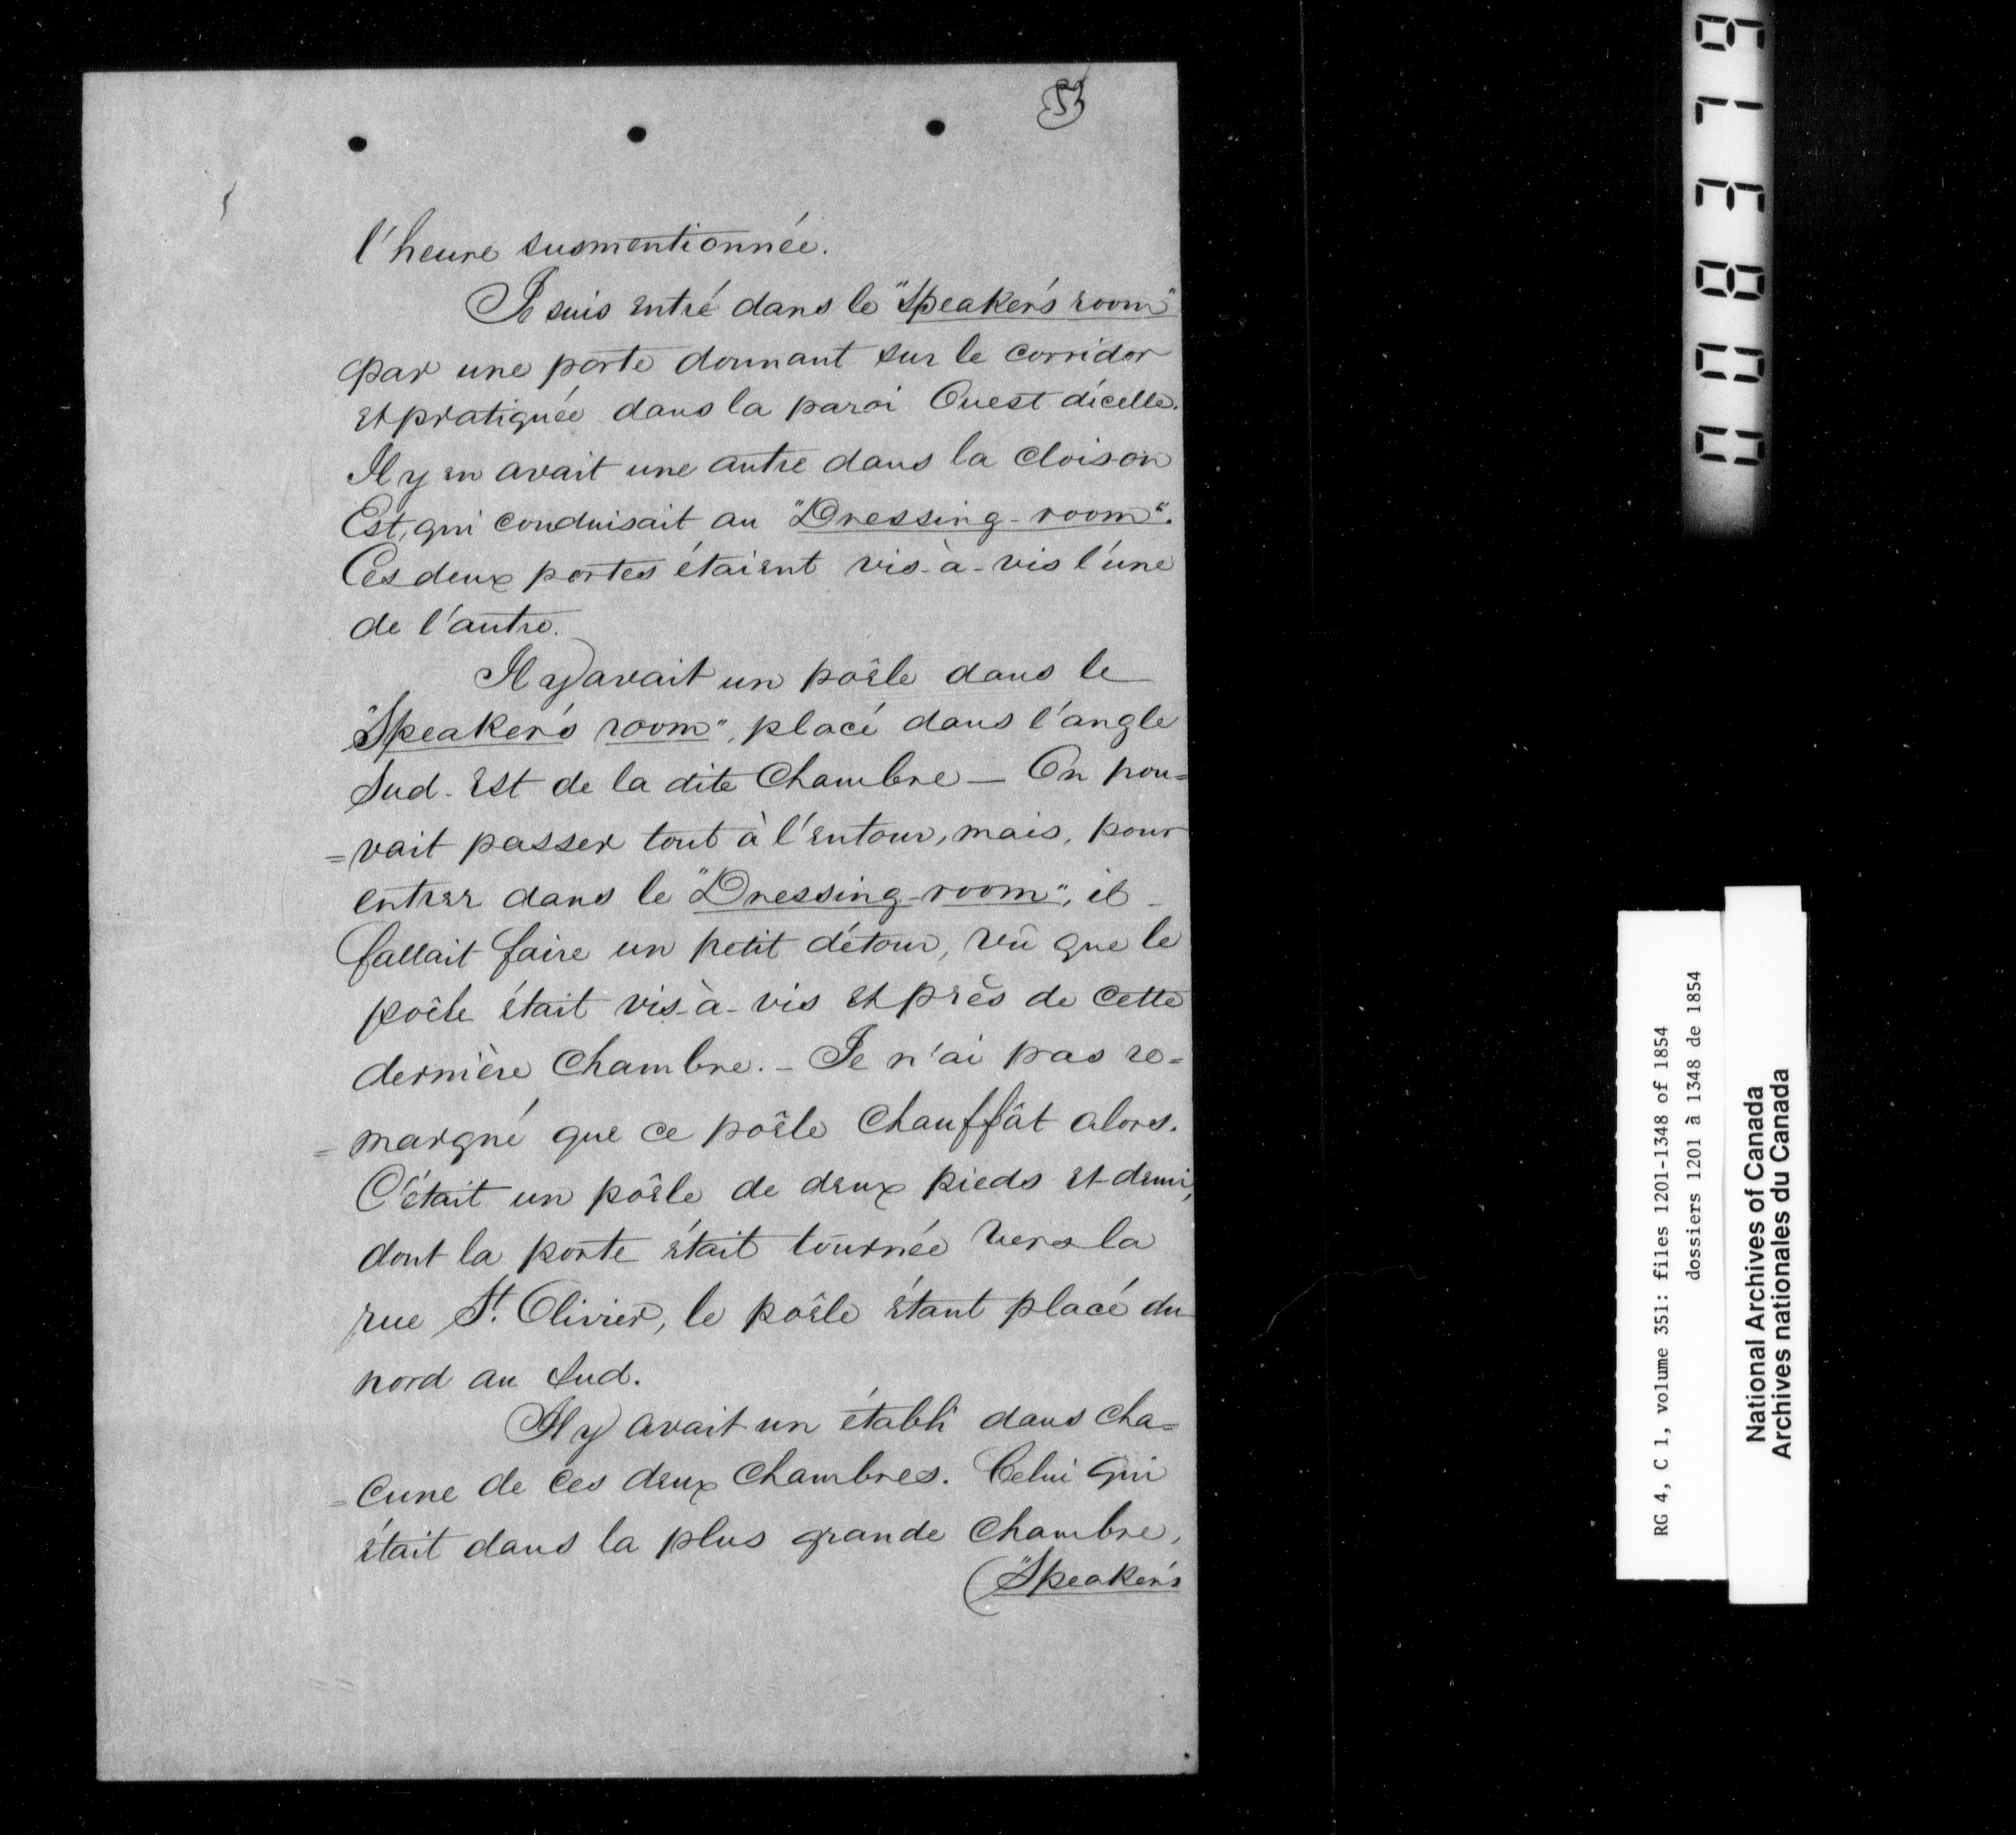 53
l'heure susmentionnée.
Je suis entré dans le "Speaker's room"
par une porte donnant sur le corridor
et pratiquée dans la paroi Ouest d'icelle.
Il y en avait une autre dans la cloison
Est, qui conduisait au "Dressing-room".
Ces deux portes étaient vis-à-vis l'une
de l'autre.
Il y avait un poêle dans le
"Speaker's room", placé dans l'angle
Sud-Est de la dite Chambre — On pou=
=vait passer tout à l'entour, mais, pour
entrer dans le "Dressing-room", il
fallait faire un petit détour, vû que le
poêle était vis-à-vis et près de cette
dernière Chambre. - Je n'ai pas re=
=marqué que ce poêle chauffât alors.
C'était un poêle de deux pieds et demi,
dont la porte était tournée vers la
rue St. Olivier, le poêle étant placé du
nord au Sud.
Il y avait un établi dans cha=
=cune de ces deux Chambres. Celui qui
était dans la plus grande Chambre,
("Speaker's
RG 4, C 1, volume 351: files 1201-1348 of 1854
dossiers 1201 à 1348 de 1854
National Archives of Canada
Archives nationales du Canada